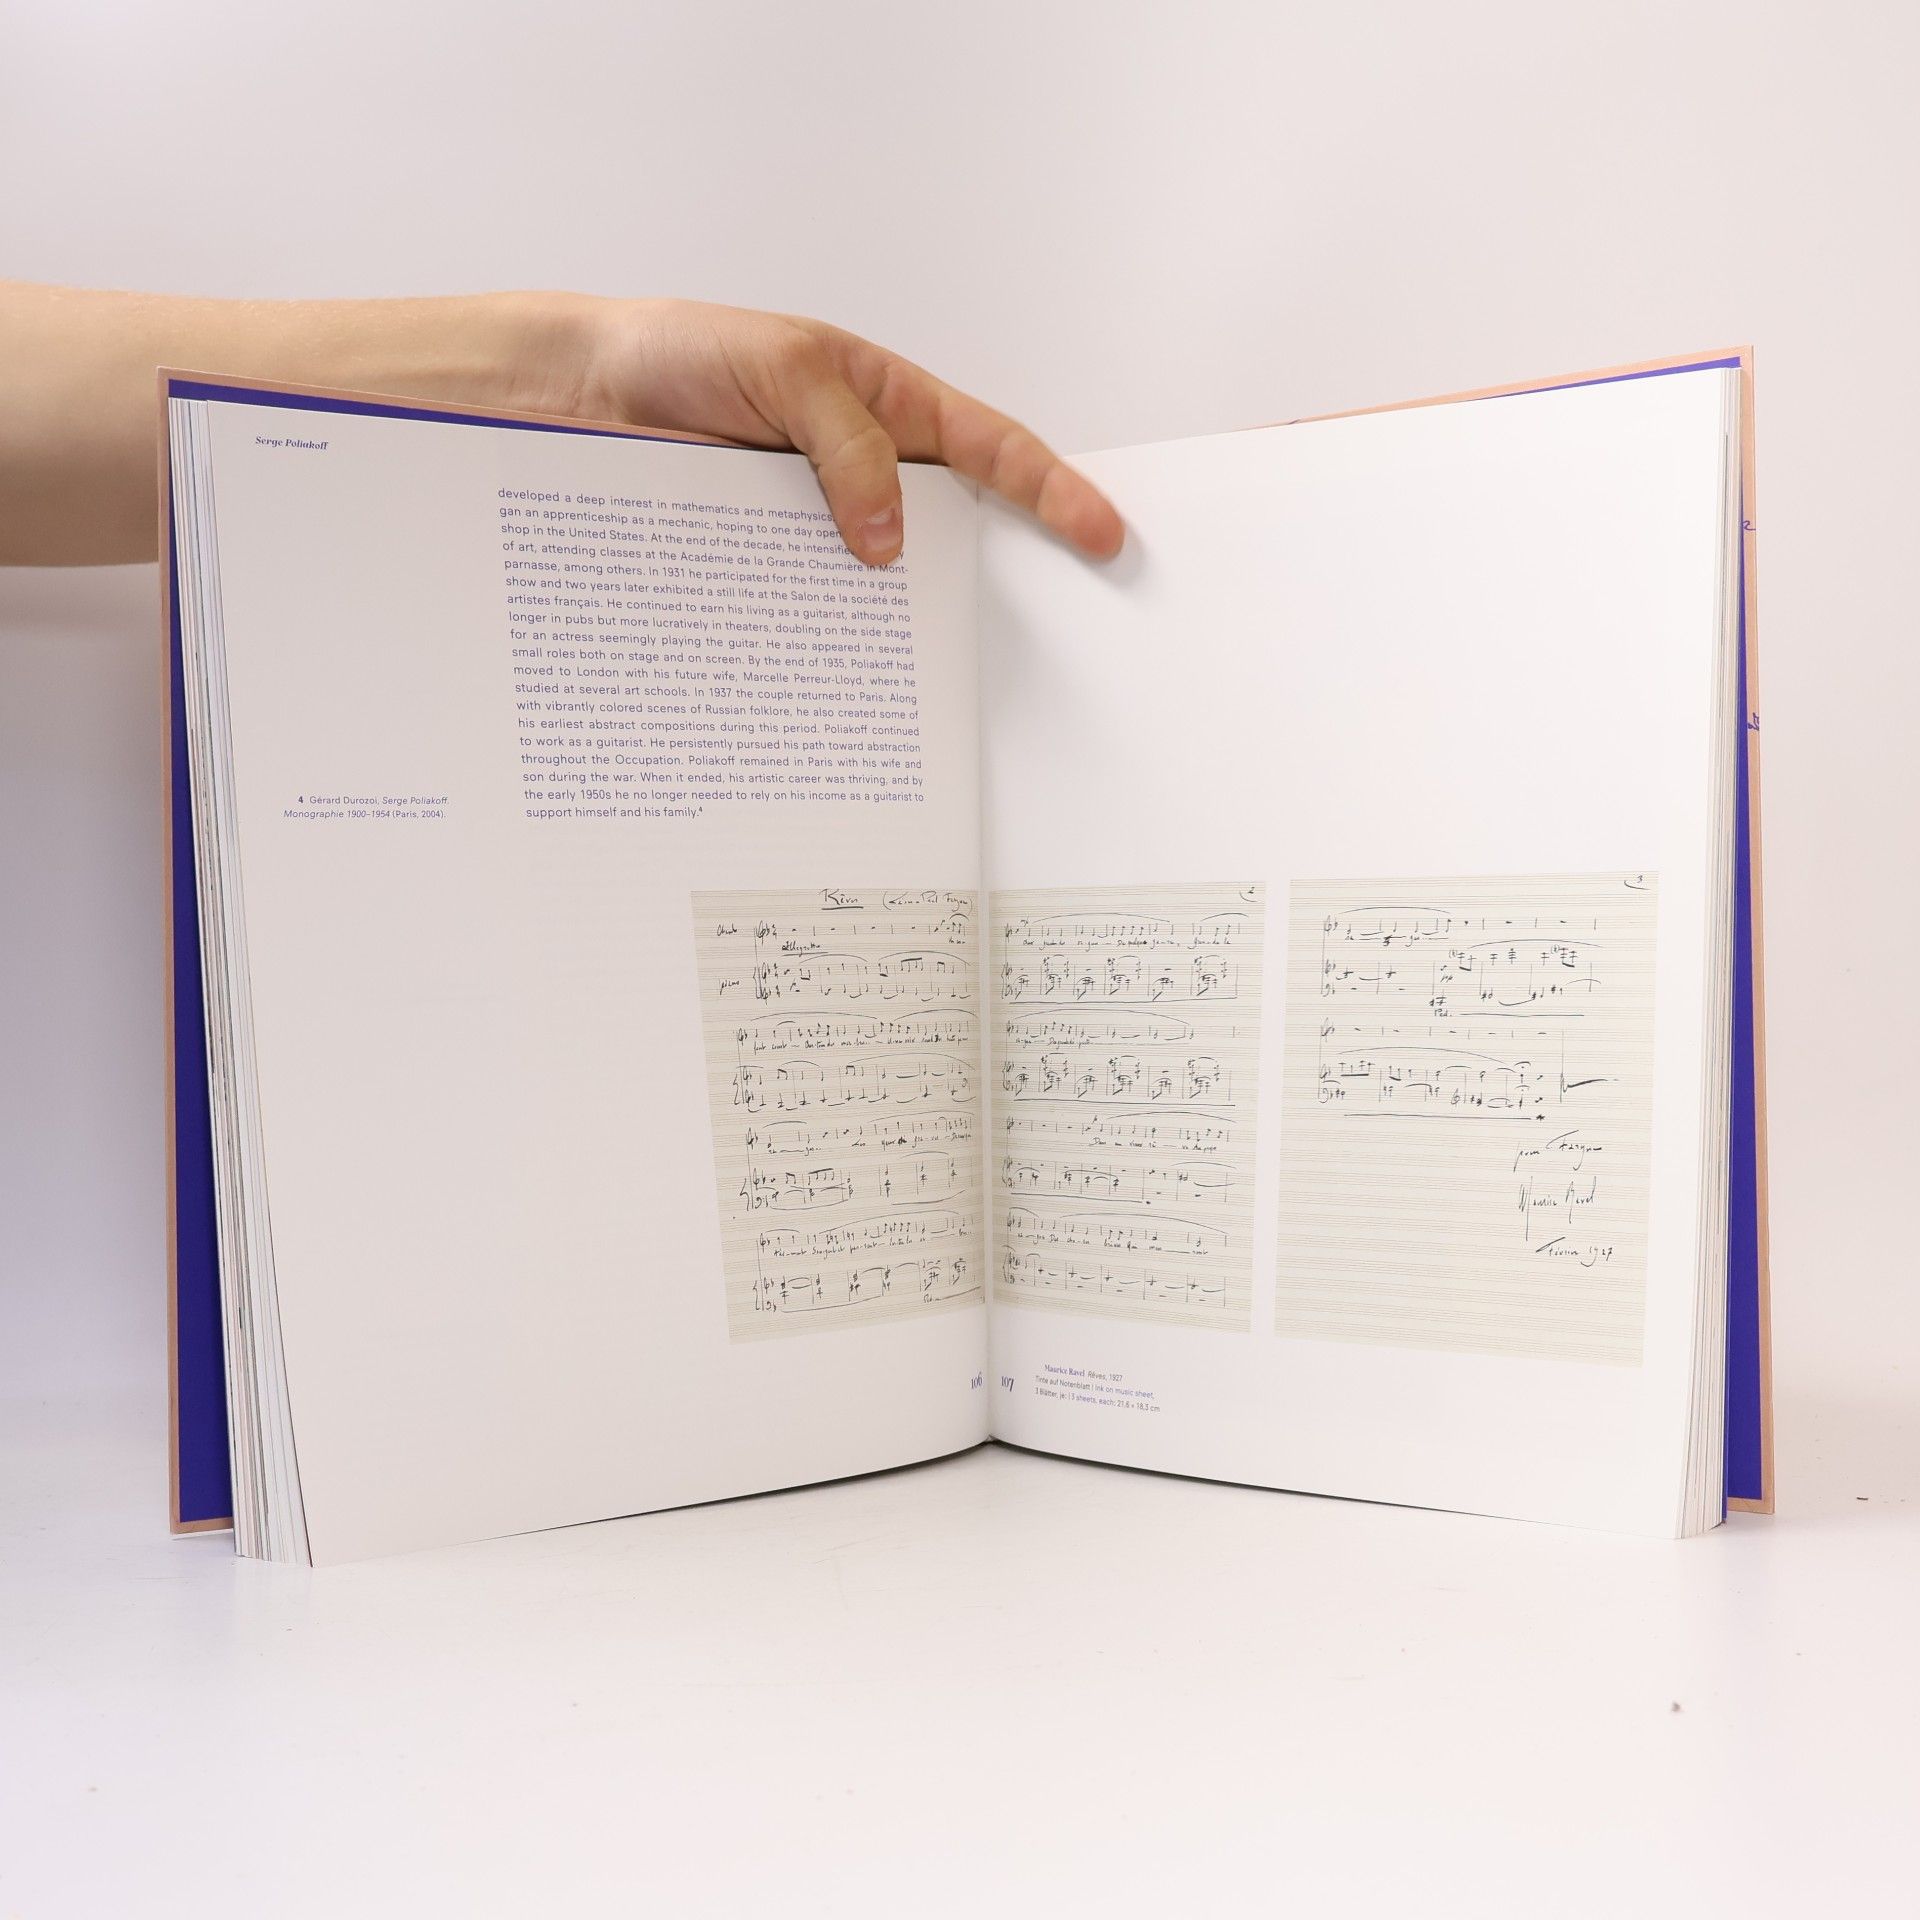 Serge Poliakoff
developed a deep interest in mathematics and metaphysics.
gan an apprenticeship as a mechanic, hoping to one day open
shop in the United States. At the end of the decade, he intensified
of art, attending classes at the Académie de la Grande Chaumière in Mont-
parnasse, among others. In 1931 he participated for the first time in a group
show and two years later exhibited a still life at the Salon de la société des
artistes français. He continued to earn his living as a guitarist, although no
longer in pubs but more lucratively in theaters, doubling on the side stage
for an actress seemingly playing the guitar. He also appeared in several
small roles both on stage and on screen. By the end of 1935, Poliakoff had
moved to London with his future wife, Marcelle Perreur-Lloyd, where he
studied at several art schools. In 1937 the couple returned to Paris. Along
with vibrantly colored scenes of Russian folklore, he also created some of
his earliest abstract compositions during this period. Poliakoff continued
to work as a guitarist. He persistently pursued his path toward abstraction
throughout the Occupation. Poliakoff remained in Paris with his wife and
son during the war. When it ended, his artistic career was thriving, and by
the early 1950s he no longer needed to rely on his income as a guitarist to
support himself and his family.⁴
4 Gérard Durozoi, Serge Poliakoff.
Monographie 1900–1954 (Paris, 2004).
Rêves (Léon-Paul Fargue)
Chant
Allegretto
piano
2
3
Ped.
pour Fargue
Maurice Ravel
Février 1927
106
107
Maurice Ravel Rêves, 1927
Tinte auf Notenblatt | Ink on music sheet,
3 Blätter, je: | 3 sheets, each: 21,6 × 18,3 cm